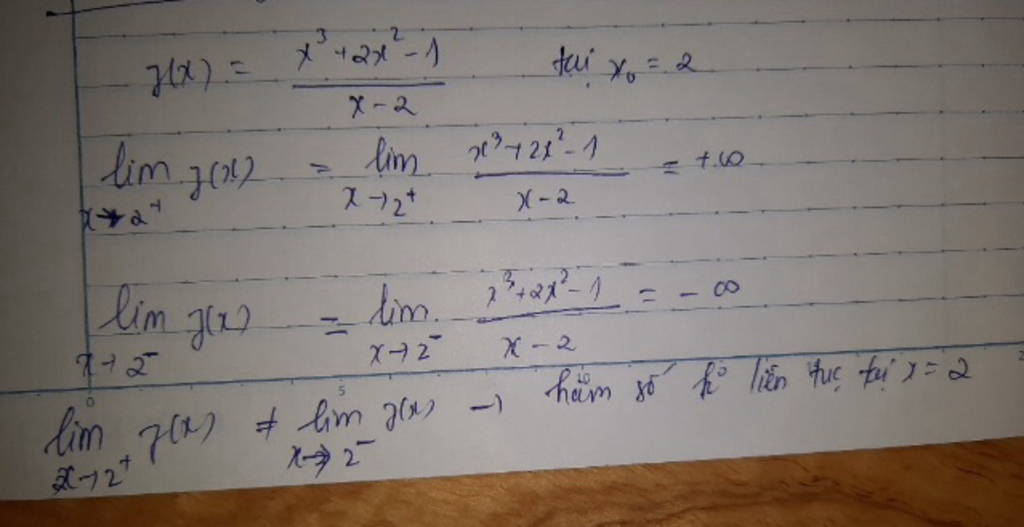 z(x) = x³+2x²-1 / x-2 tại x₀ = 2
lim x→2⁺ z(x) = lim x→2⁺ x³+2x²-1 / x-2 = +∞
lim x→2⁻ z(x) = lim x→2⁻ x³+2x²-1 / x-2 = -∞
0 5
lim x→2⁺ z(x) ≠ lim x→2⁻ z(x) → hàm số ko liên tục tại x=2